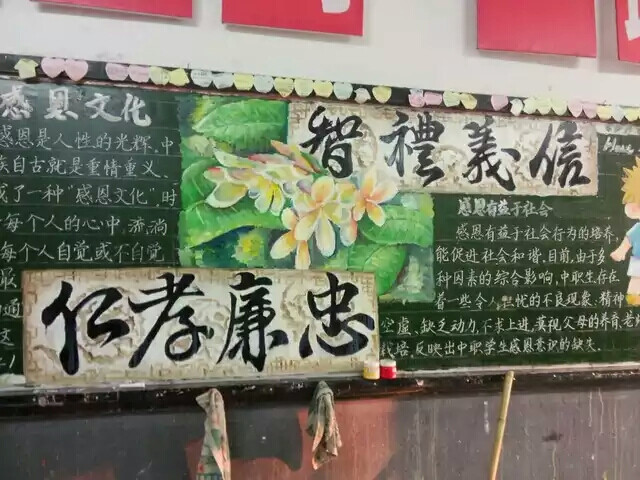 感恩文化
感恩是人性的光辉,中
族自古就是重情重义、
成了一种"感恩文化"时
每个人的心中,流淌
每个人自觉或不自觉
服
通
这
智禮義信
仁孝廉忠
感恩有益于社会
感恩有益于社会行为的培养,
能促进社会和谐.目前,由于多
种因素的综合影响,中职生存在
着一些令人担忧的不良现象:精神
空虚、缺乏动力,不求上进,莫视父母的养育,老
栽培,反映出中职学生感恩意识的缺失.